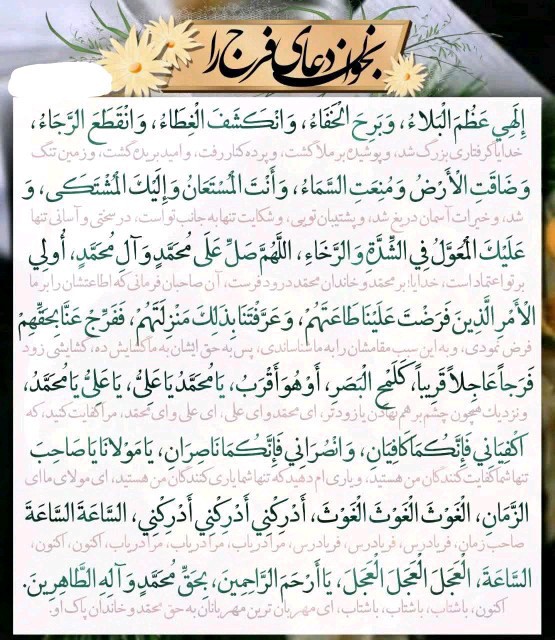 بخوان دعای فرج را
إِلَهِي عَظُمَ الْبَلاءُ، وَبَرِحَ الْخَفَاءُ، وَانْكَشَفَ الْغِطَاءُ، وَانْقَطَعَ الرَّجَاءُ،
خدایا گرفتاری بزرگ شد، و پوشیده بر ملا گشت، و پرده کنار رفت، و امید بریده گشت، و زمین تنگ
وَضَاقَتِ الْأَرْضُ وَمُنِعَتِ السَّمَاءُ، وَأَنْتَ الْمُسْتَعَانُ وَإِلَيْكَ الْمُشْتَكَى، وَ
شد، و خیرات آسمان دریغ شد، و پشتیبان تویی، و شکایت تنها به جانب تو است، در سختی و آسانی تنها
عَلَيْكَ الْمُعَوَّلُ فِي الشِّدَّةِ وَالرَّخَاءِ، اللَّهُمَّ صَلِّ عَلَى مُحَمَّدٍ وَآلِ مُحَمَّدٍ، أُولِي
بر تو اعتماد است، خدایا! بر محمد و خاندان محمد درود فرست، آن صاحبان فرمانی که اطاعتشان را بر ما
الْأَمْرِ الَّذِينَ فَرَضْتَ عَلَيْنَا طَاعَتَهُمْ، وَعَرَّفْتَنَا بِذَلِكَ مَنْزِلَتَهُمْ، فَفَرِّجْ عَنَّا بِحَقِّهِمْ
فرض نمودی، و به این سبب مقامشان را به ما شناساندی، پس به حق ایشان به ما گشایش ده، گشایشی زود
فَرَجاً عَاجِلاً قَرِيباً، كَلَمْحِ الْبَصَرِ، أَوْ هُوَ أَقْرَبُ، يَا مُحَمَّدُ يَا عَلِيُّ، يَا عَلِيُّ يَا مُحَمَّدُ،
و نزدیک همچون چشم بر هم نهادن یا زودتر، ای محمد و ای علی، ای علی و ای محمد، مرا کفایت کنید، که
اكْفِيَانِي فَإِنَّكُمَا كَافِيَانِ، وَانْصُرَانِي فَإِنَّكُمَا نَاصِرَانِ، يَا مَوْلانَا يَا صَاحِبَ
تنها شما کفایت کنندگان من هستید، و یاری ام دهید که تنها شما یاری کنندگان من هستید، ای مولای ما ای
الزَّمَانِ، الْغَوْثَ الْغَوْثَ الْغَوْثَ، أَدْرِكْنِي أَدْرِكْنِي أَدْرِكْنِي، السَّاعَةَ السَّاعَةَ
صاحب زمان، فریادرس، فریادرس، فریادرس، مرا دریاب، مرا دریاب، مرا دریاب، اکنون، اکنون،
السَّاعَةَ، الْعَجَلَ الْعَجَلَ الْعَجَلَ، يَا أَرْحَمَ الرَّاحِمِينَ، بِحَقِّ مُحَمَّدٍ وَآلِهِ الطَّاهِرِينَ.
اکنون، باشتاب، باشتاب، باشتاب، ای مهربان ترین مهربانان به حق محمد و خاندان پاک او.